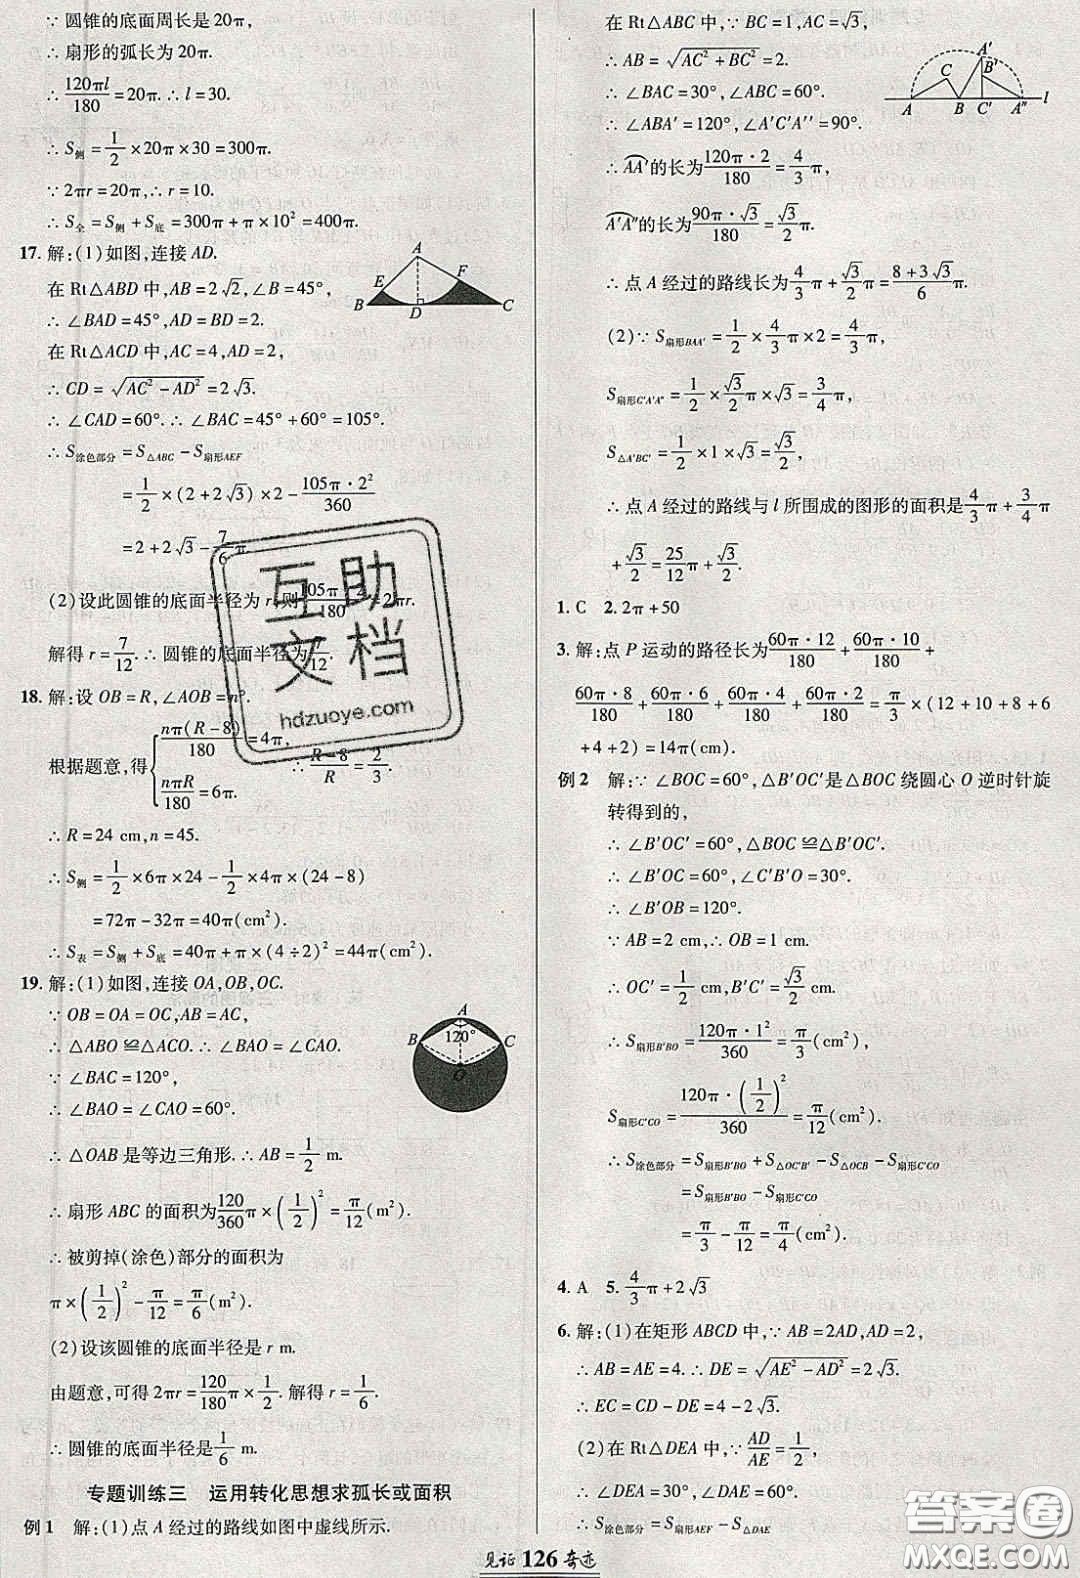 ∵圆锥的底面周长是20π,
∴扇形的弧长为20π.
∴120πl/180=20π.∴l=30.
∴S侧=1/2×20π×30=300π.
∵2πr=20π,∴r=10.
∴S全=S侧+S底=300π+π×10²=400π.
17.解:(1)如图,连接AD.
在Rt△ABD中,AB=2√2,∠B=45°,
∴∠BAD=45°,AD=BD=2.
在Rt△ACD中,AC=4,AD=2,
∴CD=√(AC²-AD²)=2√3.
∴∠CAD=60°.∴∠BAC=45°+60°=105°.
∴S涂色部分=S△ABC-S扇形AEF
=1/2×(2+2√3)×2-105π·2²/360
=2+2√3-7/6π.
A E F B D C
(2)设此圆锥的底面半径为r,则105π·2/180=2πr.
解得r=7/12.∴圆锥的底面半径为7/12.
18.解:设OB=R,∠AOB=n°.
根据题意,得{nπ(R-8)/180=4π, nπR/180=6π. ∴R-8/R=2/3.
∴R=24 cm,n=45.
∴S侧=1/2×6π×24-1/2×4π×(24-8)
=72π-32π=40π(cm²).
∴S表=S侧+S底=40π+π×(4÷2)²=44π(cm²).
19.解:(1)如图,连接OA,OB,OC.
∵OB=OA=OC,AB=AC,
∴△ABO≌△ACO.∴∠BAO=∠CAO.
∵∠BAC=120°,
∴∠BAO=∠CAO=60°.
∴△OAB是等边三角形.∴AB=1/2 m.
A B 120° C O
∴扇形ABC的面积为120/360π×(1/2)²=π/12(m²).
∴被剪掉(涂色)部分的面积为
π×(1/2)²-π/12=π/6(m²).
(2)设该圆锥的底面半径是r m.
由题意,可得2πr=120/180π×1/2.解得r=1/6.
∴圆锥的底面半径是1/6 m.
专题训练三 运用转化思想求弧长或面积
例1 解:(1)点A经过的路线如图中虚线所示.
在Rt△ABC中,∵BC=1,AC=√3,
∴AB=√(AC²+BC²)=2.
∴∠BAC=30°,∠ABC=60°.
∴∠ABA′=120°,∠A′C′A″=90°.
A′ C B′ A B C′ A″ l
∴AA′的长为120π·2/180=4/3π,
A′A″的长为90π·√3/180=√3/2π.
∴点A经过的路线长为4/3π+√3/2π=8+3√3/6π.
(2)∵S扇形BAA′=1/2×4/3π×2=4/3π,
S扇形C′A′A″=1/2×√3/2π×√3=3/4π,
S△A′BC′=1/2×1×√3=√3/2,
∴点A经过的路线与l所围成的图形的面积是4/3π+3/4π
+√3/2=25/12π+√3/2.
1.C 2.2π+50
3.解:点P运动的路径长为60π·12/180+60π·10/180+
60π·8/180+60π·6/180+60π·4/180+60π·2/180=π/3×(12+10+8+6
+4+2)=14π(cm).
例2 解:∵∠BOC=60°,△B′OC′是△BOC绕圆心O逆时针旋
转得到的,
∴∠B′OC′=60°,△BOC≌△B′OC′.
∴∠B′OC=60°,∠C′B′O=30°.
∴∠B′OB=120°.
∵AB=2 cm,∴OB=1 cm.
∴OC′=1/2,B′C′=√3/2.
∴S扇形B′BO=120π·1²/360=π/3(cm²),
S扇形C′CO=120π·(1/2)²/360=π/12(cm²).
∴S涂色部分=S扇形B′BO+S△OC′B′-S△OCB-S扇形C′CO
=S扇形B′BO-S扇形C′CO
=π/3-π/12=π/4(cm²).
4.A 5.4/3π+2√3
6.解:(1)在矩形ABCD中,∵AB=2AD,AD=2,
∴AB=AE=4.∴DE=√(AE²-AD²)=2√3.
∴EC=CD-DE=4-2√3.
(2)在Rt△DEA中,∵AD/AE=1/2,
∴∠DEA=30°.∴∠EAB=30°.
∴S涂色部分=S扇形AEF-S△DAE
见证126奇迹
互助文档
hdzuoye.com
答案圈
MXQE.COM